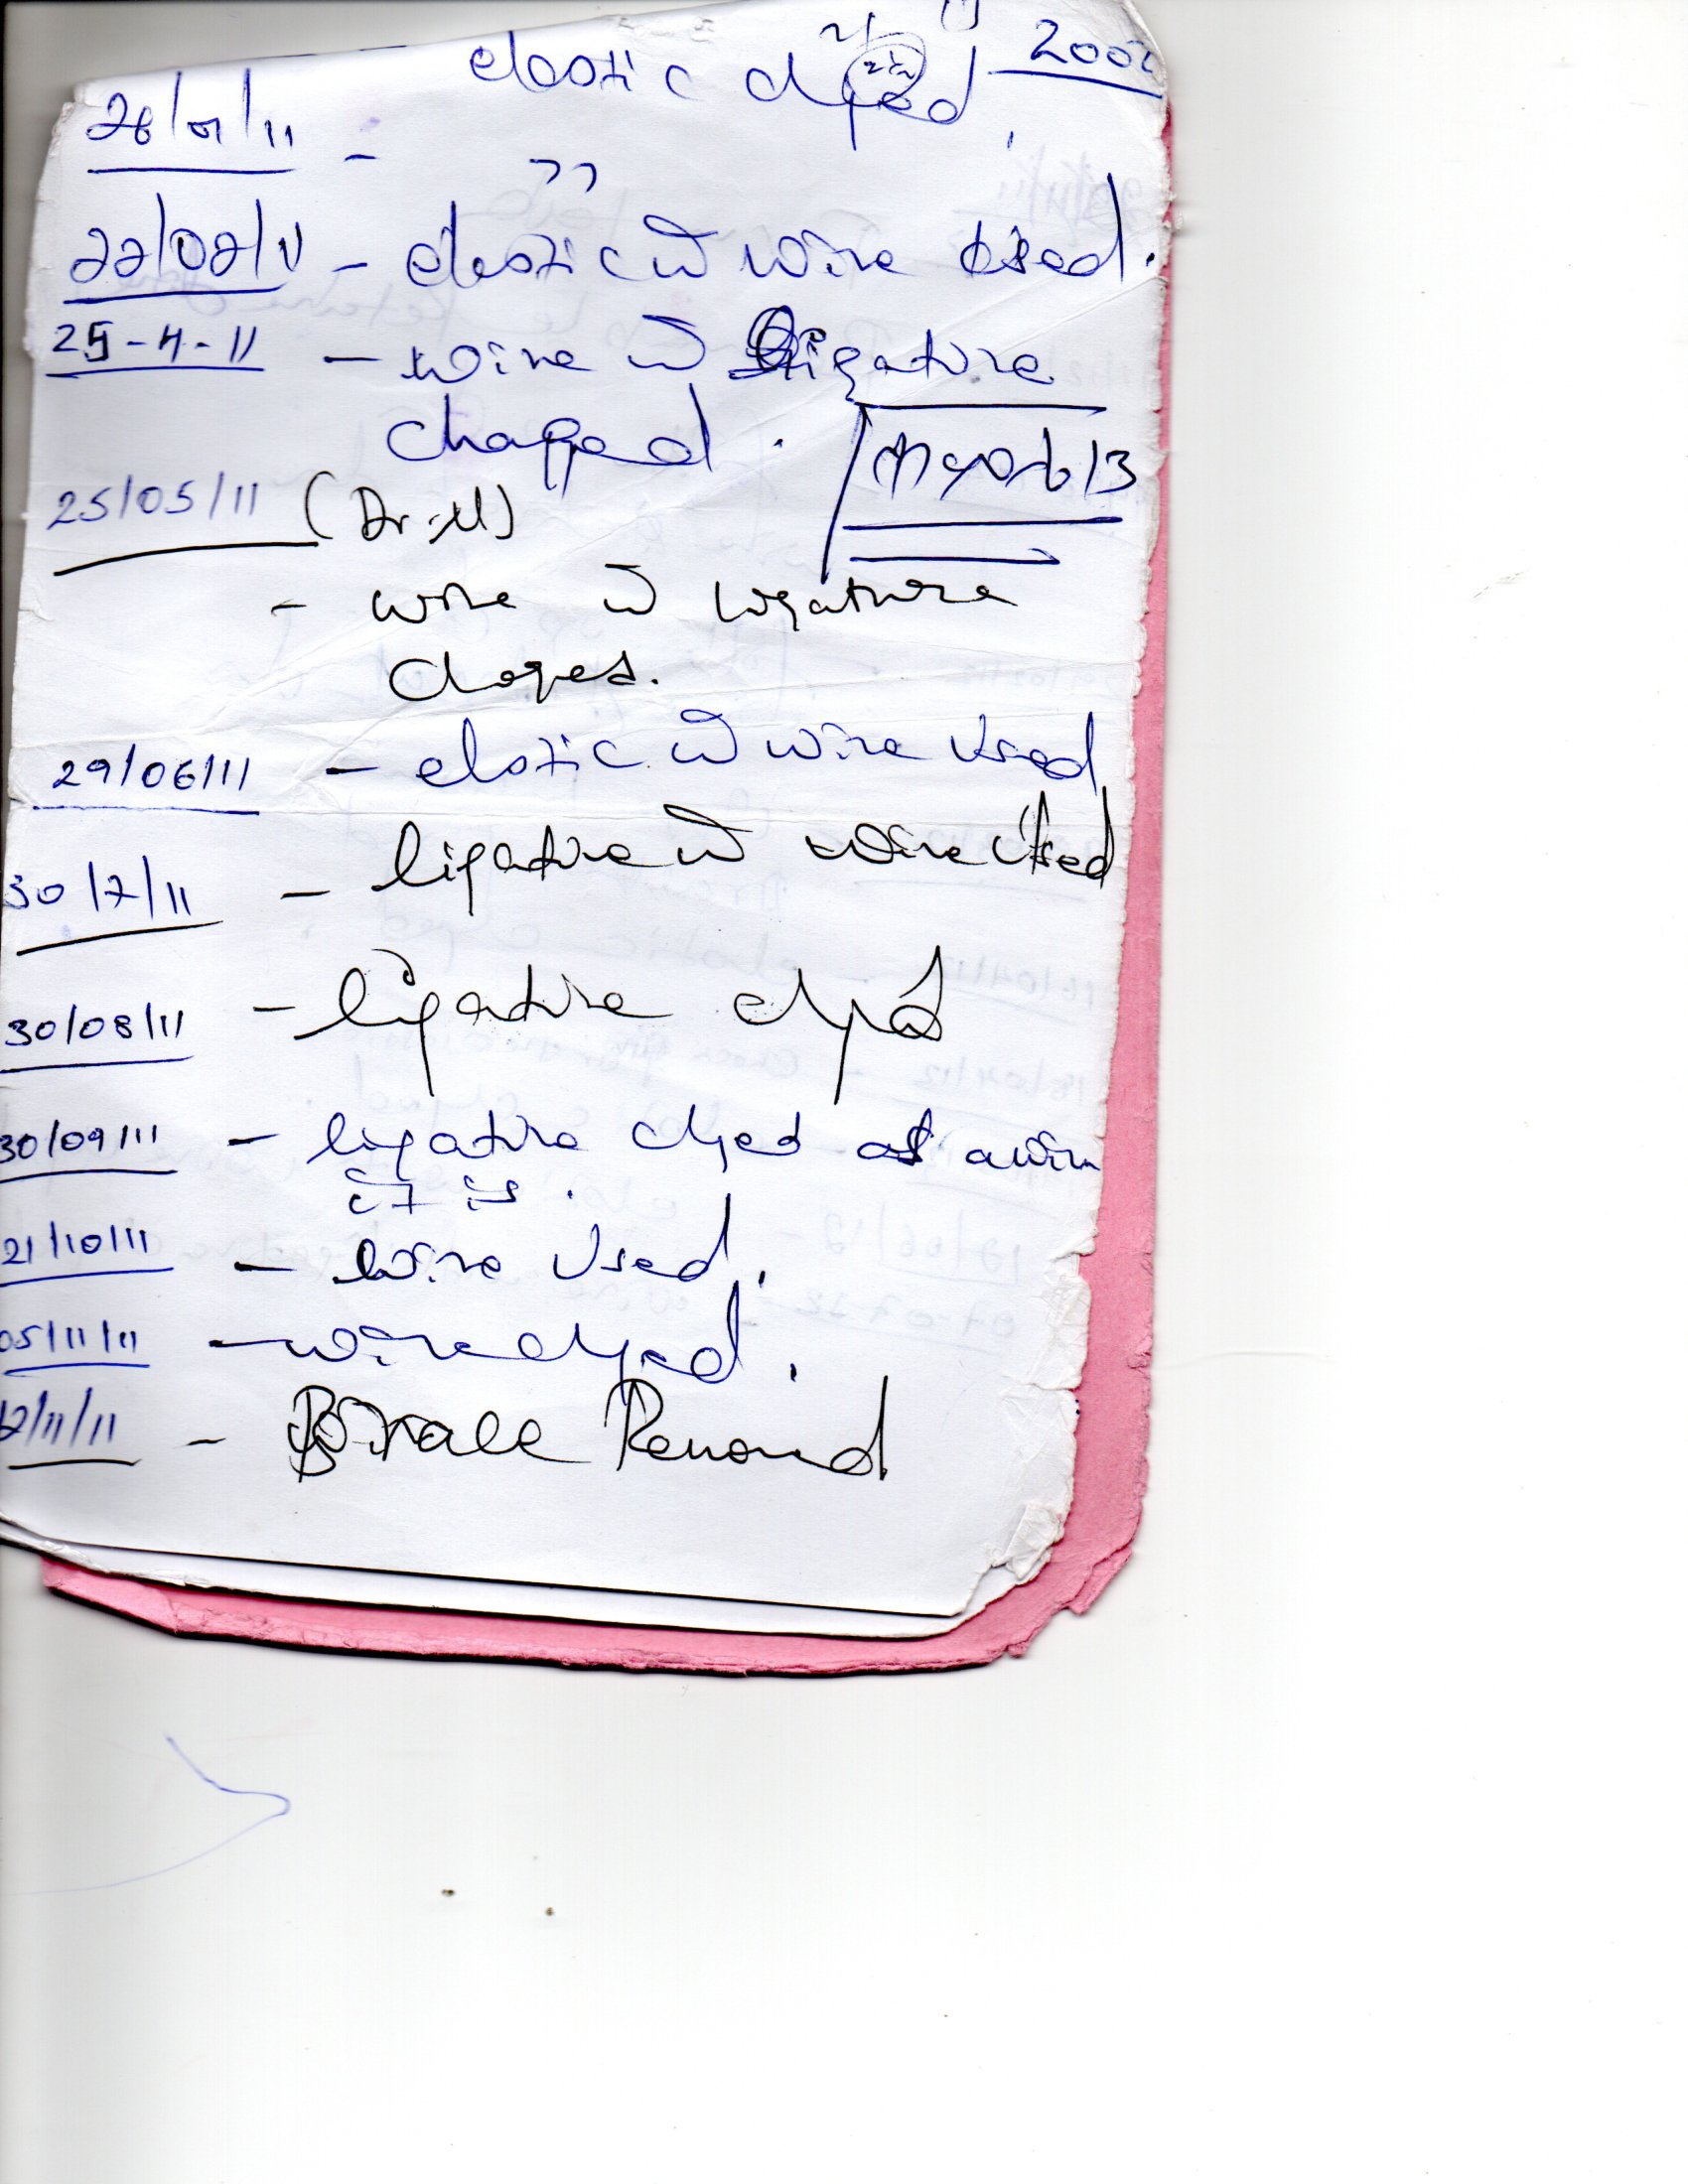 elastic chged. 2002
28/01/11 - ,,
22/02/11 - elastic c̄ wire used.
25-4-11 - wire c̄ ligature
changed.
25/05/11 (Dr. M)
- wire c̄ ligature
changed.
29/06/11 - elastic c̄ wire used
30/7/11 - ligature c̄ wire used
30/08/11 - ligature chgd
30/09/11 - ligature chged
21/10/11 - wire used.
05/11/11 - wire chged.
12/11/11 - Brace Removed